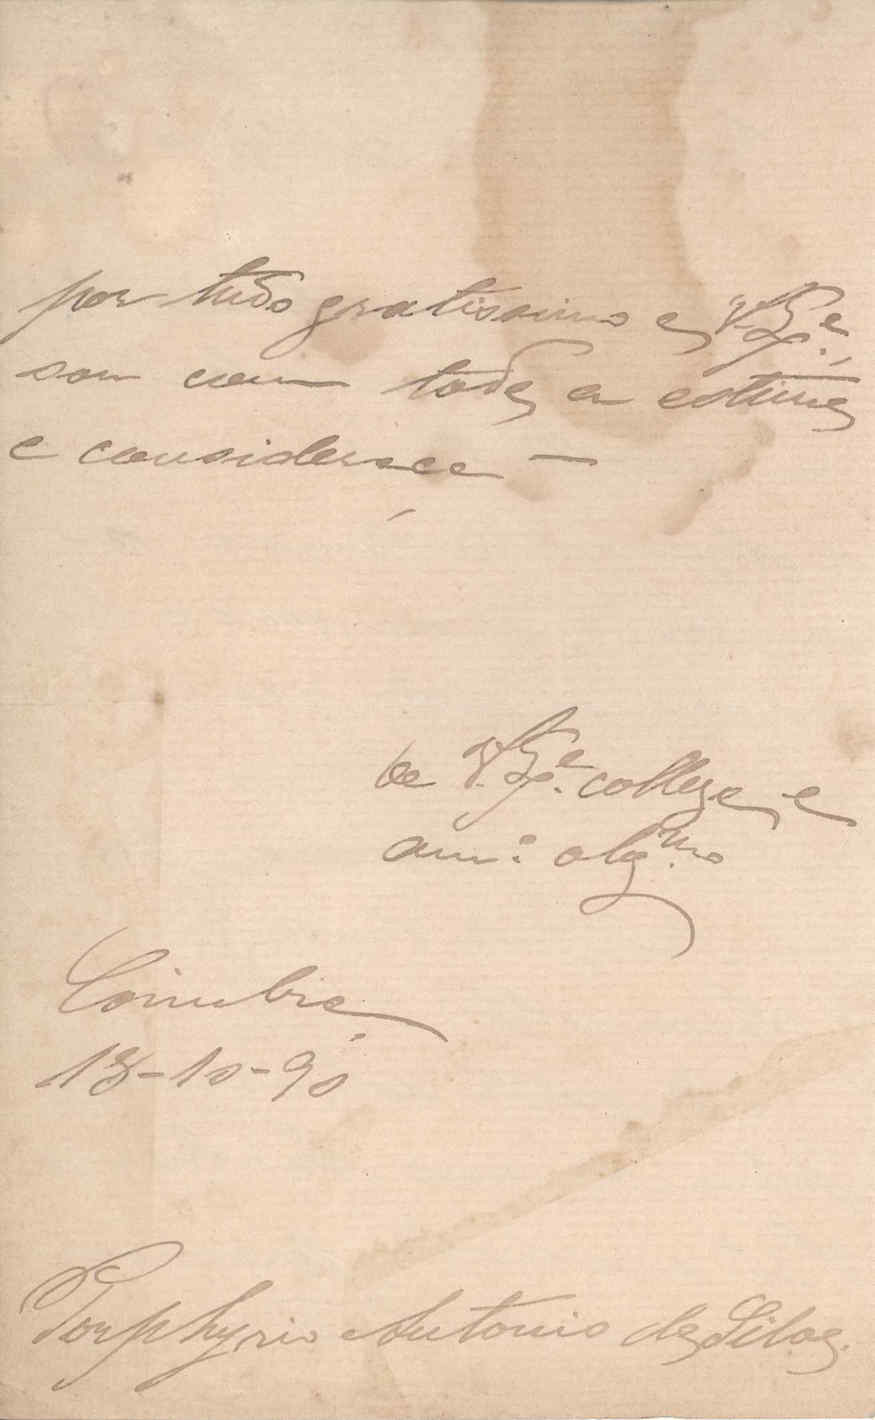 por tudo gratissimo a V. Ex.ª,
sou com toda a estima
e consideração —
de V. Ex.ª collega e
am.º obg.mo
Coimbra
13-10-90
Porphyrio Antonio da Silva.